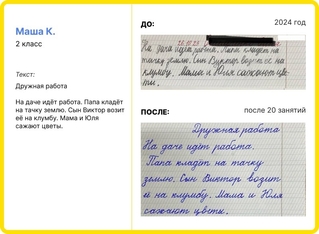 Маша К.
2 класс
Текст:
Дружная работа
На даче идёт работа. Папа кладёт
на тачку землю. Сын Виктор возит
её на клумбу. Мама и Юля
сажают цветы.
ДО:
2024 год
На даче идёт работа. Папа кладёт на
тачку землю. Сын Виктор возит её на
клумбу. Мама и Юля сажают цве-
ты.
ПОСЛЕ:
после 20 занятий
Дружная работа
На даче идёт работа.
Папа кладёт на тачку
землю. Сын Виктор возит
её на клумбу. Мама и Юля
сажают цветы.